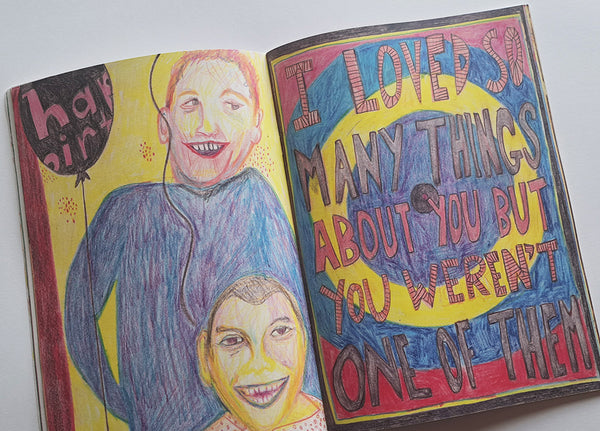 I LOVED SO
MANY THINGS
ABOUT YOU BUT
YOU WEREN'T
ONE OF THEM